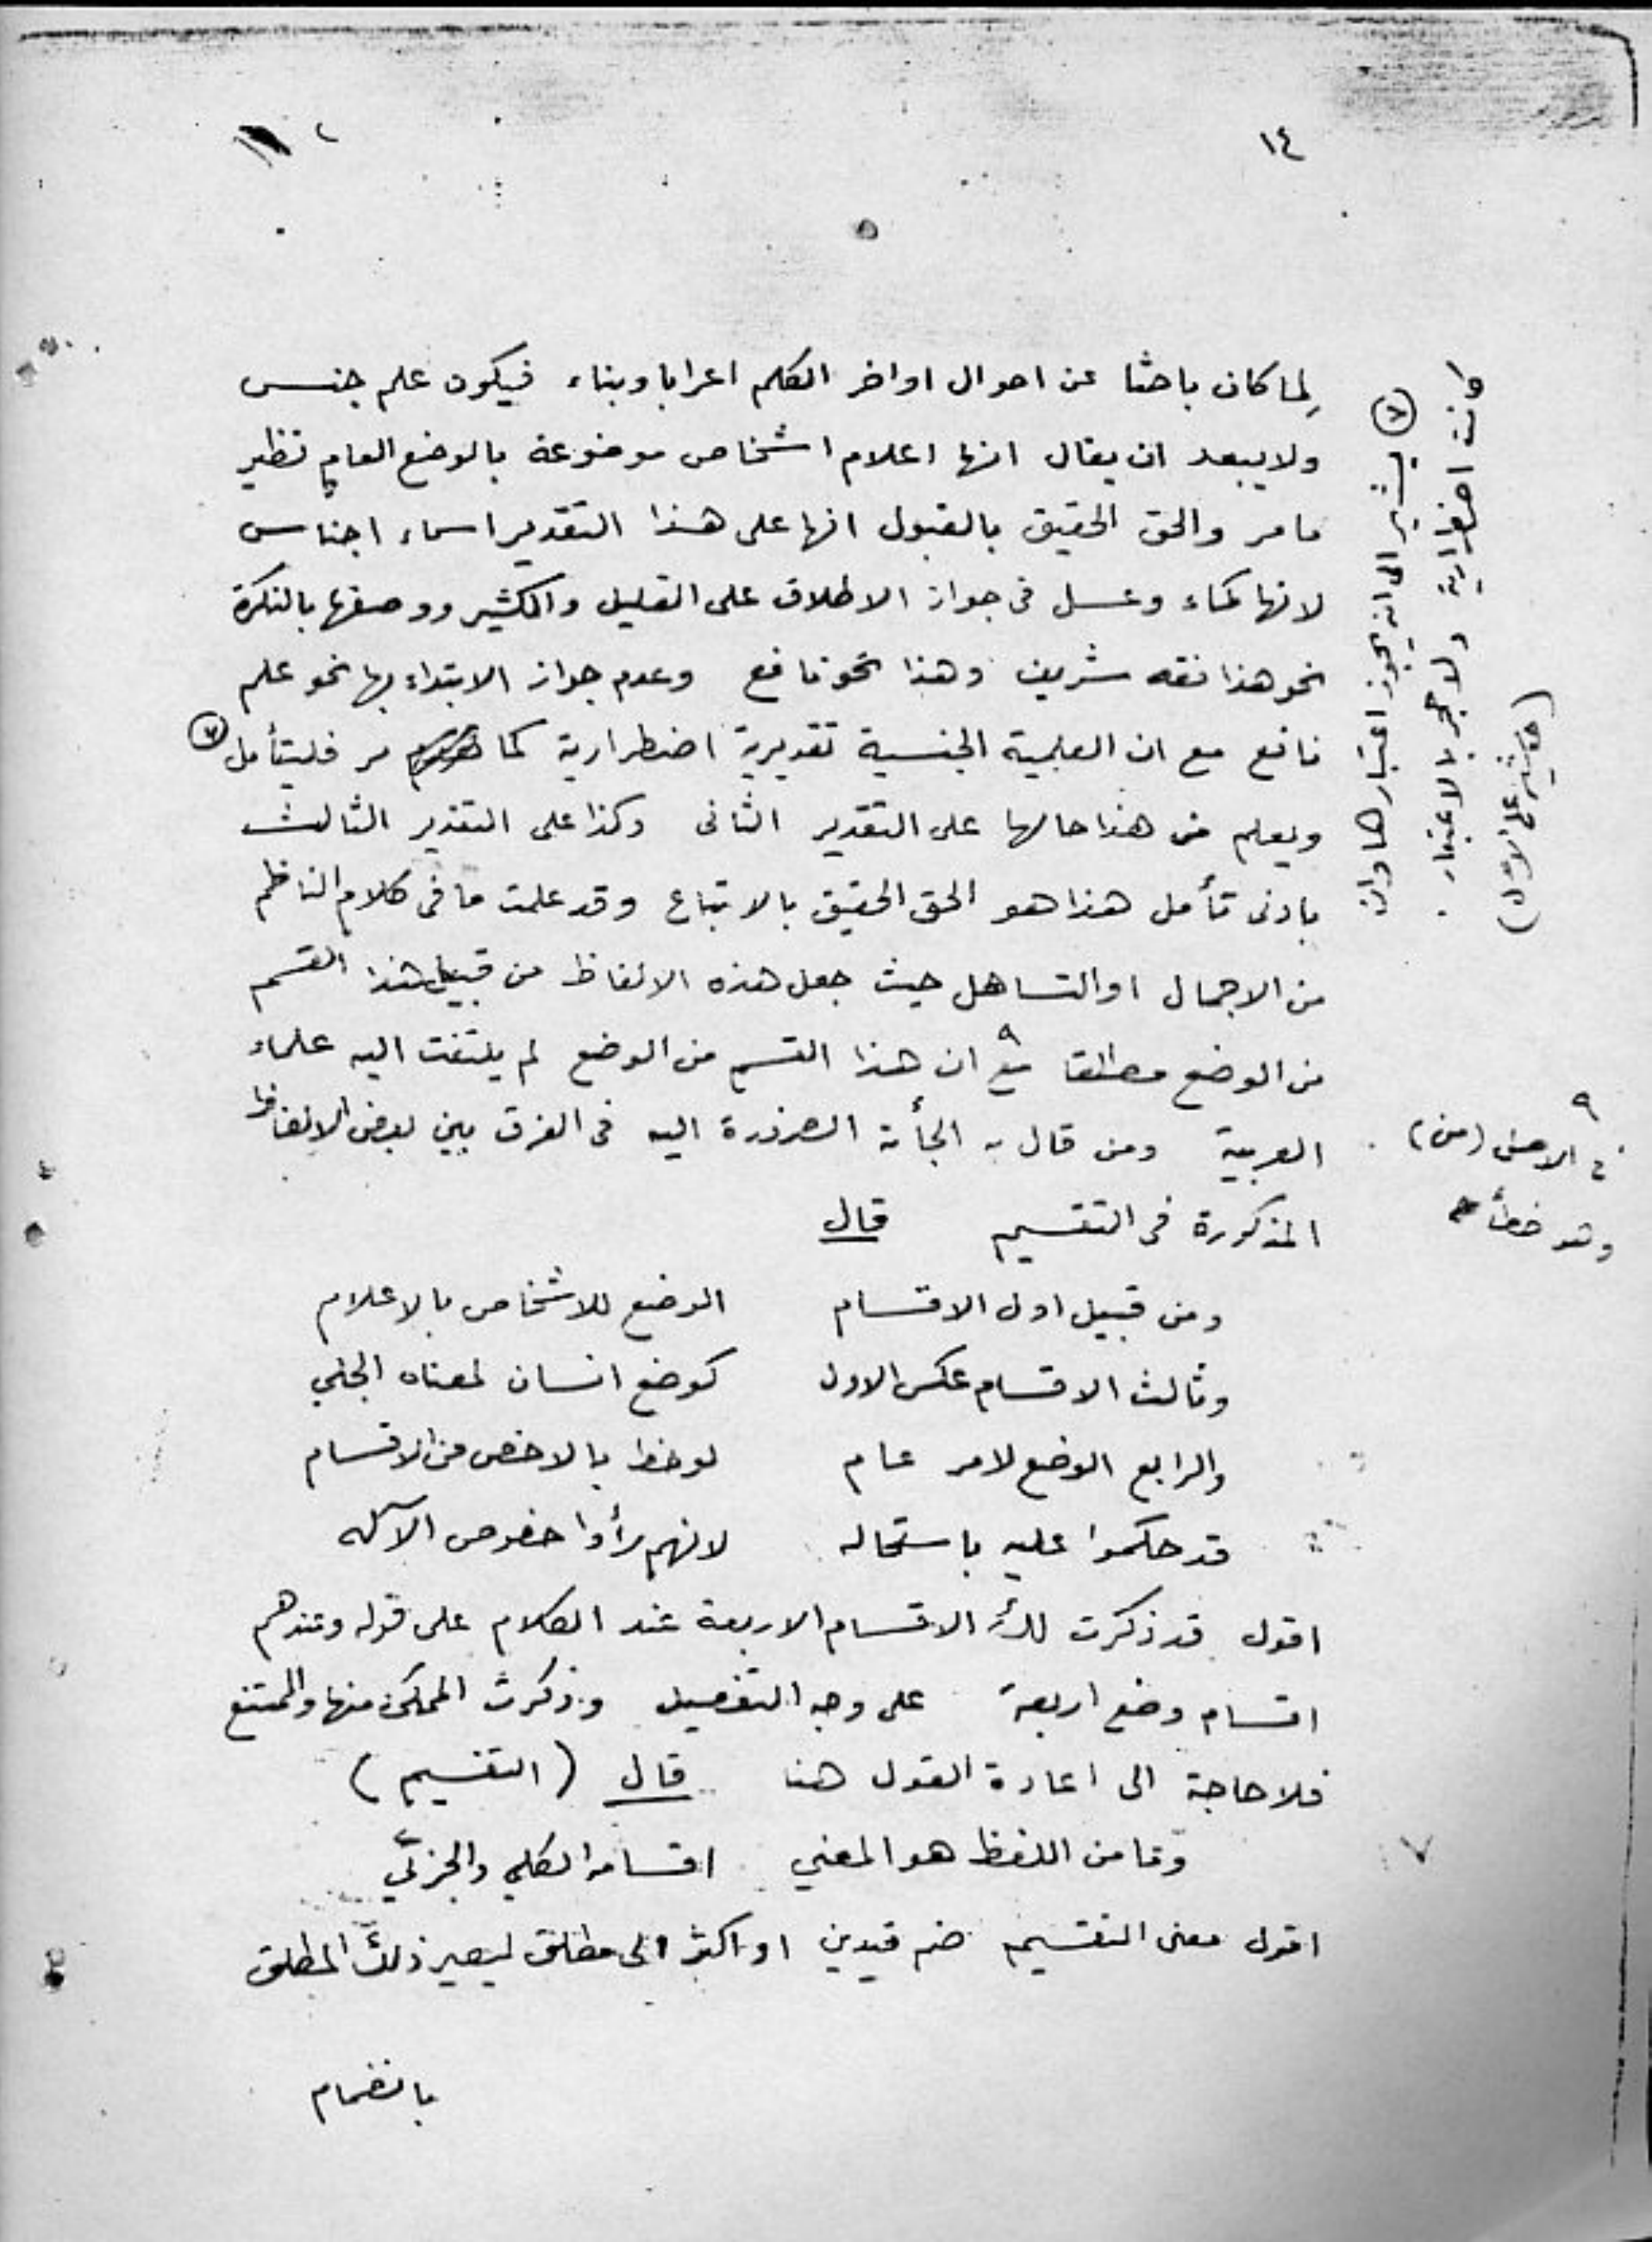 ١٤
لما كان باحثا عن احوال اواخر الكلم اعرابا وبناء فيكون علم جنس
ولا يبعد ان يقال انها اعلام اشخاص موضوعة بالوضع العام نظير
ما مر والحق الحقيق بالقبول انها على هذا التقدير اسماء اجناس
لانها كماء وعسل فى جواز الاطلاق على القليل والكثير ووصفها بالنكرة
نحو هذا فقه شريف وهذا نحو نافع وعدم جواز الابتداء بها نحو علم
نافع مع ان العلمية الجنسية تقديرية اضطرارية كما مر فليتأمل (٧)
ويعلم من هذا حالها على التقدير الثانى وكذا على التقدير الثالث
بادنى تأمل هذا هو الحق الحقيق بالاتباع وقد علمت ما فى كلام الناظم
من الاجمال او التساهل حيث جعل هذه الالفاظ من قبيل هذا القسم
من الوضع مطلقا مع ٩ ان هذا القسم من الوضع لم يلتفت اليه علماء
العربية ومن قال به الجأته الضرورة اليه فى الفرق بين بعض الالفاظ
المذكورة فى التقسيم قال
ومن قبيل اول الاقسام الوضع للاشخاص بالاعلام
وثالث الاقسام عكس الاول كوضع انسان لمعناه الجلي
والرابع الوضع لامر عام لوحظ بالاخص من الاقسام
قد حكموا عليه باستحاله لانهم رأوا خصوص الآله
اقول قد ذكرت لك الاقسام الاربعة عند الكلام على قوله وعندهم
اقسام وضع اربعة على وجه التفصيل وذكرت الممكن منها والممتنع
فلا حاجة الى اعادة القول هنا قال (التقسيم)
وما من اللفظ هو المعني اقسامه الكلي والجزئي
اقول معنى التقسيم ضم قيدين او اكثر الى مطلق ليصير ذلك المطلق
بانضمام
(٧) يشير الى انه يجوز اعتبارها وان
كانت اضطرارية ولا حجر بالاعتبار.
٩
فى الاصل (من)
وهو خطأ